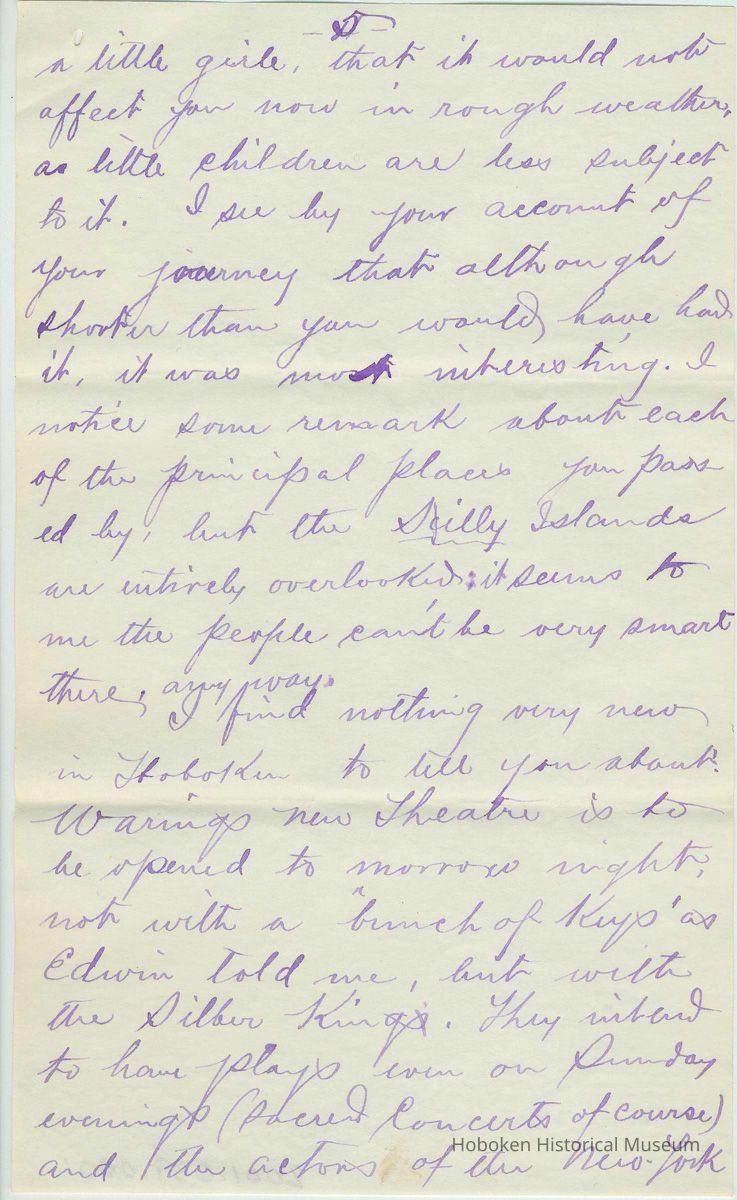 - 5 -
a little girle, that it would not
affect you now in rough weather,
as little children are less subject
to it. I see by your account of
your journey that although
shorter than you would, have had
it, it was most interesting. I
notice some remark about each
of the principal places you pass-
ed by, but the Scilly Islands
are entirely overlooked; it seems to
me the people can't be very smart
there, anyway.
I find nothing very new
in Hoboken to tell you about.
Warings new Theatre is to
be opened to morrow night,
not with a "bunch of Keys" as
Edwin told me, but with
the Silber King. They intend
to have plays even on Sunday
evenings (sacred Concerts of course)
and the actors of the New-York
Hoboken Historical Museum